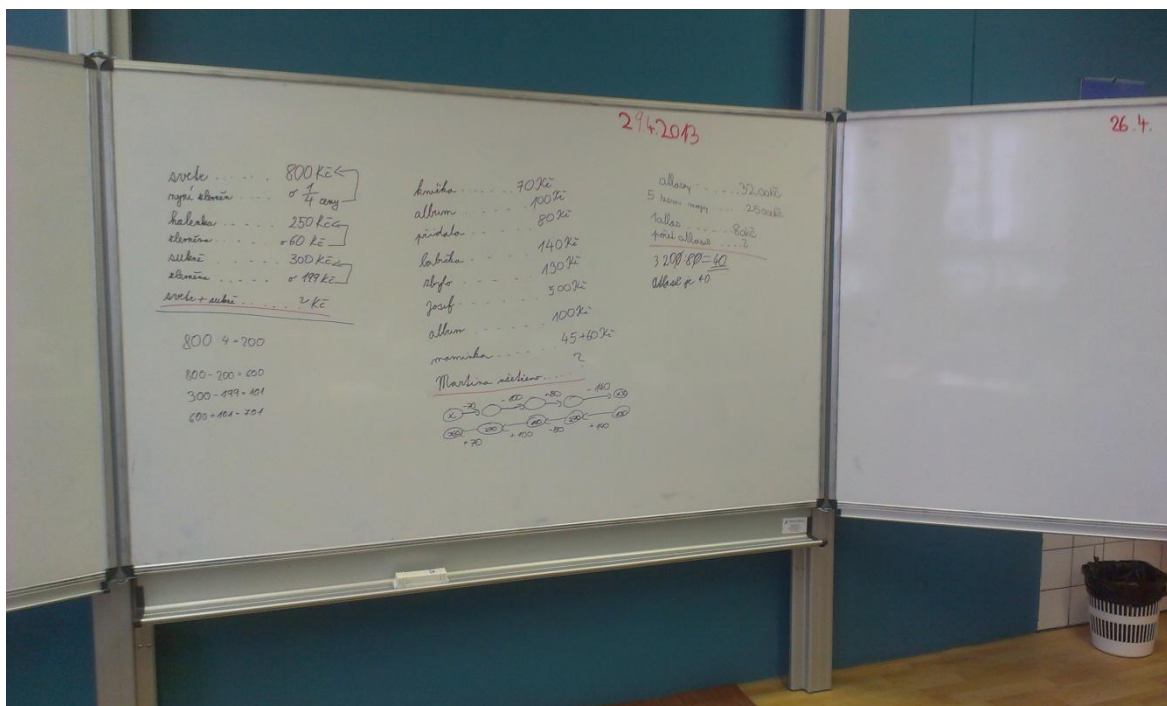 29.4.2013
26.4.
svetr ...... 800 Kč
nyní zlevněn o 1/4 ceny
halenka ..... 250 Kč
zlevněna ..... o 60 Kč
sukně ..... 300 Kč
zlevněna ..... o 199 Kč
svetr + sukně ..... ? Kč
800 : 4 = 200
800 - 200 = 600
300 - 199 = 101
600 + 101 = 701
knížka ...... 70 Kč
album ....... 100 Kč
přidala ...... 80 Kč
...... 140 Kč
zbylo ...... 130 Kč
Josef ...... 500 Kč
album ...... 100 Kč
maminka ...... 45+60 Kč
Martina ušetřeno ...... ?
x -70 -100 +80 -140
+70 +100 -80 +140
atlasy ...... 3200 Kč
5 map ...... 2500 Kč
1 atlas ...... 80 Kč
počet atlasů ...... ?
3 200 : 80 = 40
Atlasů je 40.